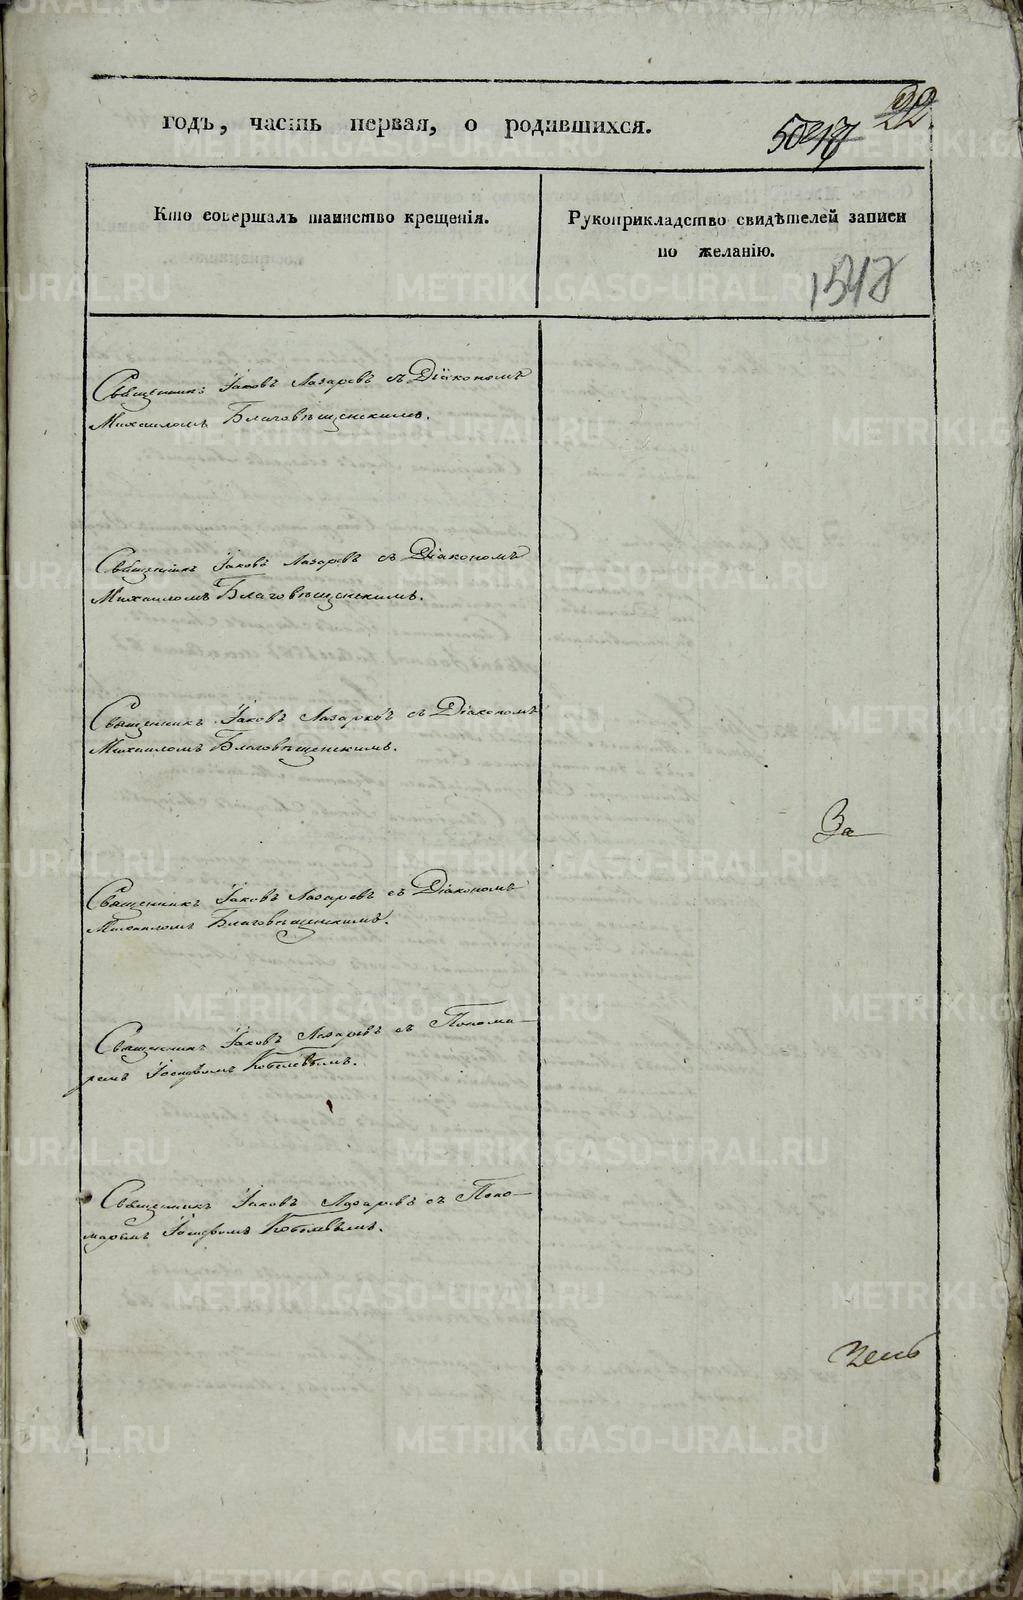 годъ, часть первая, о родившихся.
22
Кто совершалъ таинство крещенія.
Рукоприкладство свидѣтелей записи
по желанію.
1548
Священникъ Іаковъ Лазаревъ съ Діакономъ
Михаиломъ Благовѣщенскимъ.
Священникъ Іаковъ Лазаревъ съ Діакономъ
Михаиломъ Благовѣщенскимъ.
Священникъ Іаковъ Лазаревъ съ Діакономъ
Михаиломъ Благовѣщенскимъ.
За
Священникъ Іаковъ Лазаревъ съ Діакономъ
Михаиломъ Благовѣщенскимъ.
Священникъ Іаковъ Лазаревъ съ Понома-
ремъ Іосифомъ Кобелевымъ.
Священникъ Іаковъ Лазаревъ съ Поно-
маремъ Іосифомъ Кобелевымъ.
METRIKI.GASO-URAL.RU